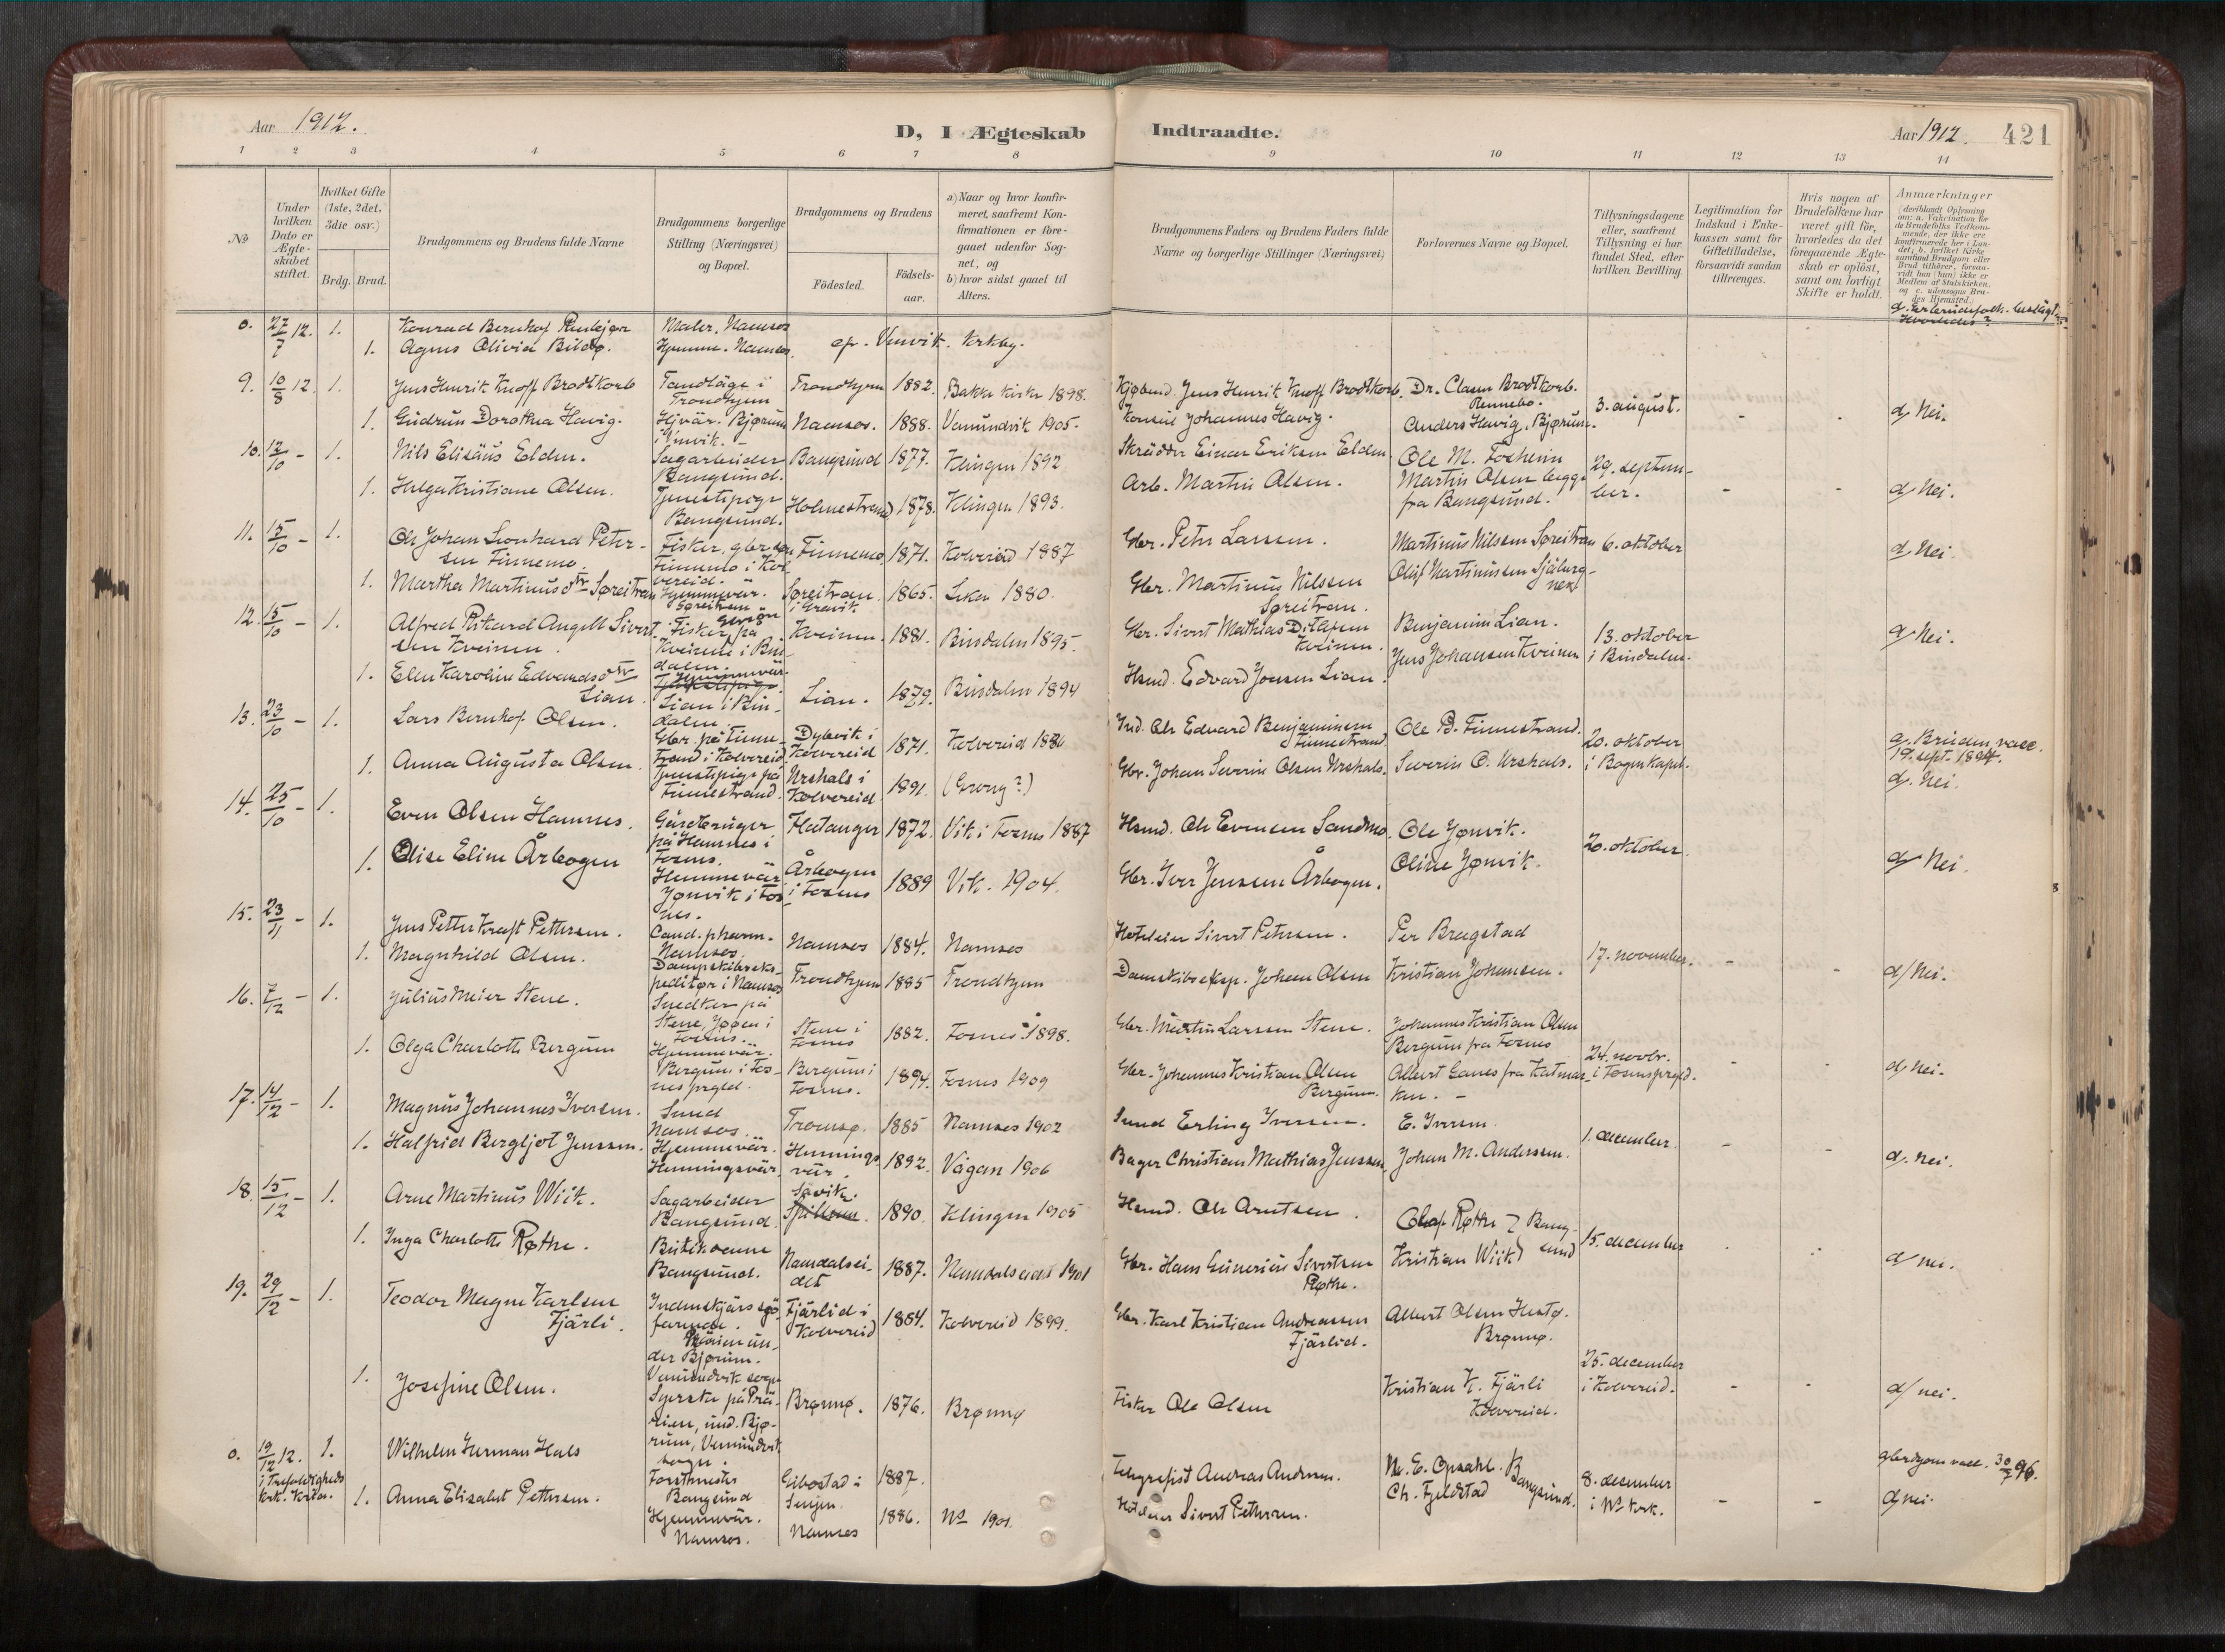 Aar 1912.
D, I Ægteskab
Indtraadte.
Aar 1912. 421
1 2 3 4 5 6 7 8 9 10 11 12 13 14
No
Under hvilken Dato er Ægteskabet stiftet.
Hvilket Gifte (1ste, 2det, 3die osv.)
Brdg. Brud.
Brudgommens og Brudens fulde Navne
Brudgommens borgerlige Stilling (Næringsvei) og Bopæl.
Brudgommens og Brudens
Födested.
Födsels-aar.
a) Naar og hvor konfir-
meret, saafremt Kon-
firmationen er fore-
gaaet udenfor Sog-
net, og
b) hvor sidst gaaet til
Alters.
Brudgommens Faders og Brudens Faders fulde
Navne og borgerlige Stillinger (Næringsvei)
Forlovernes Navne og Bopæl.
Tillysningsdagene
eller, saafremt
Tillysning ei har
fundet Sted, efter
hvilken Bevilling.
Legitimation for
Indskud i Enke-
kassen samt for
Giftetilladelse,
forsaavidt saadan
tiltrænges.
Hvis nogen af
Brudefolkene har
været gift för,
hvorledes da det
foregaaende Ægte-
skab er oplöst,
samt om lovligt
Skifte er holdt.
Anmærkninger
(deriblandt Oplysning
om: a. Vakcination for
de Brudefolks Vedkom-
mende, der ikke ere
konfirmerede her i Lan-
det; b. hvilket Kirke-
samfund Brudgom eller
Brud tilhörer, forsaa-
vidt han (hun) ikke er
Medlem af Statskirken,
og c. udensogns Bru-
des Hjemsted.)
d. Er brudefolk. beslägt.
Hvorledes?
0. 27/7 12. 1. Konrad Bernhof Maler. Namsos
1. Agnes Olivia Hjemme. Namsos. Vemvik. Krkby.
9. 10/8 12. 1. Jens Henrik Knoff Brodtkorb Tandläge i Trondhjem Trondhjem 1882. Bakke kirke 1898. Kjøbmd. Jens Henrik Knoff Brodtkorb. Dr. Clasen Brodtkorb. Rennebo. 3. august. - - d. Nei.
1. Gudrun Dorothea Havig. Hjvär. Bjørum i Vmvik. - Namsos. 1888. Vemundvik 1905. Konsul Johannes Havig. Anders Havig, Bjørum.
10. 12/10 - 1. Nils Elisäus Elden. Sagarbeider Bangsund. Bangsund 1877. Klingen 1892 Skrädder Einar Eriksen Elden Ole M. Fosheim 29. septem-
1. Helga Kristiane Olsen. Tjenestepige Bangsund. Holmestrand 1878. Klingen 1893. Arb. Martin Olsen. Martin Olsen begge fra Bangsund. ber. - - d. Nei.
11. 5/10 - 1. Ole Johan Leonhard Peter-
sen Finnemo. Fisker, gbrsøn Finnemo i Kol-
vereid. Finnemo 1871. Kolvereid 1887 Gbr. Peter Larssen. Martinus Nilssen Søreitran 6. oktober d. Nei.
1. Martha Martinusdtr Søreitran Hjemmevär. Søreitran Søreitran i Gravik 1865. Leka 1880. Gbr. Martinus Nilssen Søreitran. Olaf Martinussen Sjäberg-
nes
12. 15/10 - 1. Alfred Rikard Angell Sivert-
sen Kveinen. Fisker på Kveinen i Bin-
dalen. Kveinen. 1881. Bindalen 1895. Gbr. Sivert Mathias Ditlefsen Kveinen. Benjamin Lian. 13. oktober d. Nei.
1. Elen Karoline Edvardsdtr Lian. Hjemmevär. Lian i Bin-
dalen. Lian. 1879. Bindalen 1894 Hsmd. Edvard Jonsen Lian. Jens Johansen Kveinen i Bindalen.
13. 23/10 - 1. Lars Bernhof Olsen. Gbr. på Finne-
strand i Kolvereid Dybvik i Kolvereid 1871. Kolvereid 1886 Ind. Ole Edvard Benjaminsen Finnestrand Ole B. Finnestrand. 20. oktober a. Bruden vacc.
1. Anna Augusta Olsen. Tjenestepige på Finnestrand. Urshals i Kolvereid 1891. (Grong?) Gbr. Johan Severin Olsen Urshals. Severin O. Urshals. i Bogen kapel. 19. sept. 1894.
d. Nei.
14. 25/10 - 1. Even Olsen Hamnes. Gårdbruger på Hamnes i Fosnes. Flatanger 1872. Vik i Fosnes 1887 Hsmd. Ole Evensen Sandmo. Ole Jønvik. 20. oktober. d. Nei.
1. Elise Eline Årbogen Hjemmevär Jønvik i Fos-
nes. Årbogen i Fosnes 1889 Vik. 1904. Gbr. Iver Jenssen Årbogen. Oline Jønvik.
15. 23/11 - 1. Jens Petter Kraft Pettersen. Cand. pharm. Namsos. Namsos 1884. Namsos Hoteleier Sivert Petersen. Per Bragstad 17. november. - - d/ Nei.
1. Magnhild Olsen. Dampskibseks-
peditør i Namsos Trondhjem 1885 Trondhjem Damskibseksp. Johan Olsen Kristian Johansen.
16. 7/12 - 1. Julius Meier Stene. Snedker på Stene, Jøøen i Fosnes. Stene i Fosnes 1882. Fosnes 1898. Gbr. Martin Larssen Stene. Johannes Kristian Olsen Bergum fra Fosnes 24. novbr.
1. Olga Charlotte Bergum Hjemmevär. Bergum i Fos-
nes prgld. Bergum i Fosnes. 1894. Fosnes 1909 Gbr. Johannes Kristian Olsen Bergum. Albert Lanes fra i Fosnes prgld. - - d. Nei.
17. 14/12 - 1. Magnus Johannes Iversen. Smed Namsos. Tromsø. 1885 Namsos 1902 Smed Erling Iversen. E. Iversen. 1. december - - d. nei.
1. Halfrid Bergljot Jenssen. Hjemmevär. Henningsvär. Hennings-
vär. 1892. Vågan 1906 Bager Christian Mathias Jenssen. Johan M. Anderssen.
18. 15/12 - 1. Arne Martinus Wiik. Sagarbeider Bangsund. Sävik. Spillum. 1890. Klingen 1905 Hsmd. Ole Arntsen. Olaf Røthe } Bang-
1. Inga Charlotte Røthe. Butikdame Bangsund. Namdalsei-
det 1887. Namdalseidet 1901 Gbr. Hans Sivertsen Røthe. Kristian Wiik } sund 15. december d/ nei.
19. 29/12 - 1. Teodor Magne Karlsen Fjärli. Indenskjärs sjö-
farende. Prärien un-
der Bjørum. Vemundvik sogn Fjärlid i Kolvereid 1884. Kolvereid 1899. Gbr. Karl Kristian Andreassen Fjärlid. Albert Olsen Brønnø. 25. december
1. Josefine Olsen. Syerske på Prä-
rien, und. Bjø-
rum, Vemundvik sogn. Brønnø. 1876. Brønnø Fisker Ole Olsen Kristian K. Fjärli Kolvereid. i Kolvereid. - - d/ nei.
0. 19/12 12. 1. Wilhelm Herman Hals Forstmester Bangsund Gibostad i Senjen. 1887. Telegrafist Andreas Andersen. N. E. Opdahl. Bangsund. 8. desember
i Trefoldigheds krk. Kr.ia. 1. Anna Elisabet Pettersen. Hjemmevär. Namsos. Namsos 1886. Ns 1901. Hoteleier Sivert Pettersen. Ch. Fjeldstad i Ns krk. - - d/ nei.